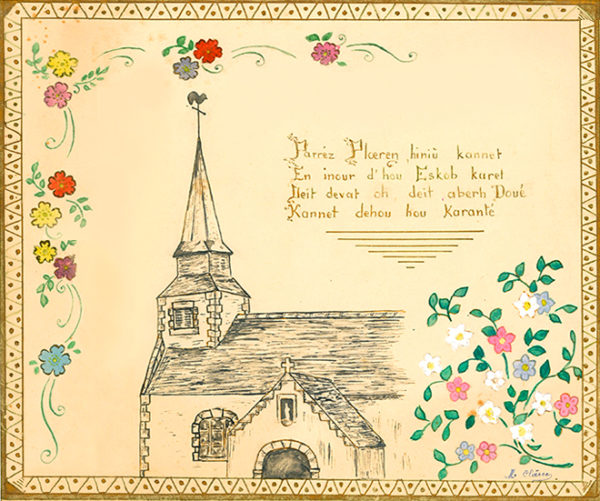 Parréz Plœren, hiniù kannet
En inour d'hou Eskob karet
Deit devat oh, deit, aberh Doué
Kannet dehou hou Karanté